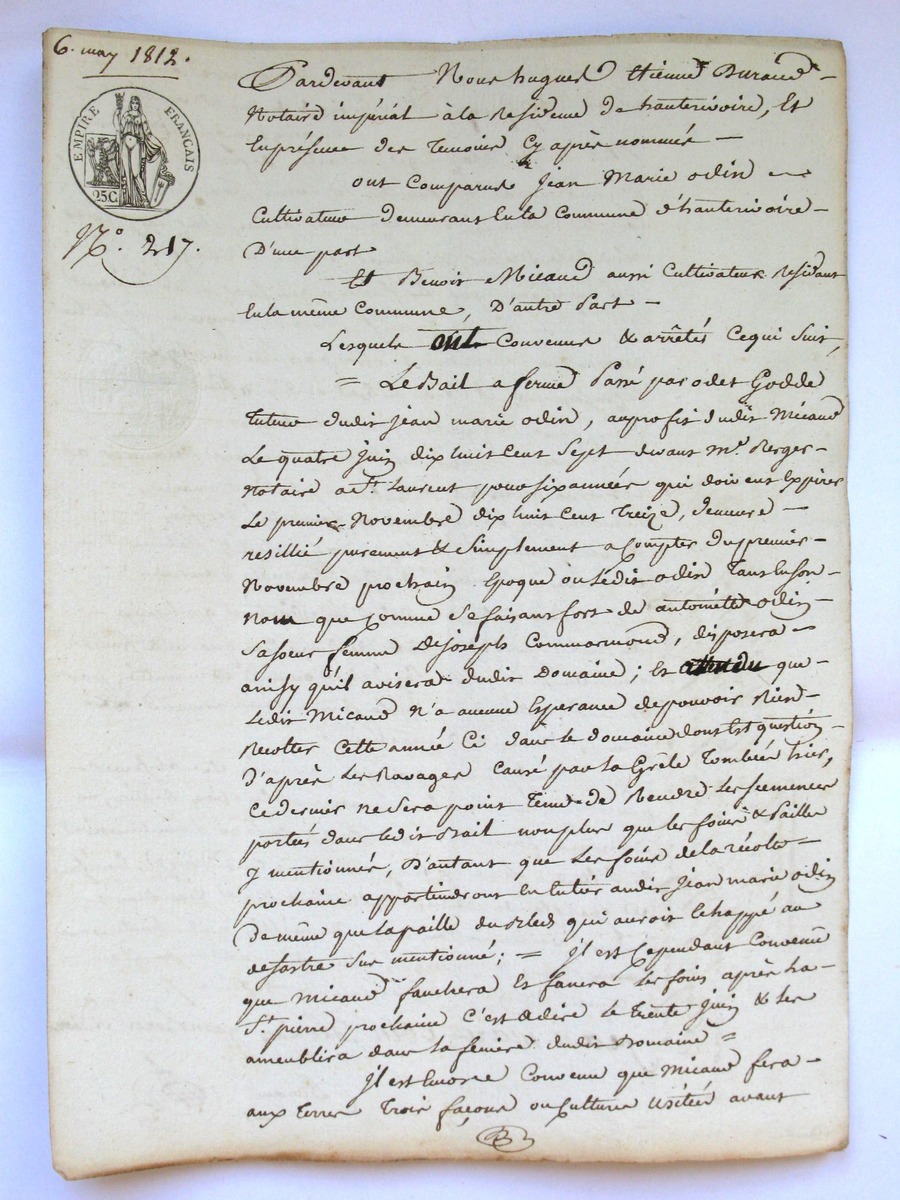 6. may 1812.
EMPIRE FRANCAIS
25C.
N.° 217.
Pardevant Nous hugues Etienne Durand
Notaire impérial à la Residence de hauterivoire, Et
En présence des Temoins Cy après nommés
ont Comparus Jean Marie odin
Cultivateur demeurans En la Commune d'hauterivoire
D'une part
Et Benoit Micaud aussi Cultivateur Residant
En la même Commune, D'autre Part
Lesquels ont Convenus & arrêtés Cequi Suit,
= Le Bail a ferme Passé par odet Godde
tuteur dudit jean marie odin, au profit dudit Micaud
Le quatre juin dix huit Cent Sept devant m.e Berger
Notaire a S.t Laurent pour six années qui doivent Expirer
Le premier Novembre dix huit Cent Treize, demeure
resillié purement & Simplement a Compter du premier
Novembre prochain Epoque ou Ledit odin Tant En Son
Nom que Comme Se faisant fort de antoinette odin
Sa soeur femme De joseph Commarmond, disposera
ainsy qu'il avisera dudit Domaine; Et attendu que
Ledit Micaud N'a aucune Esperance de pouvoir Rien
Recolter Cette année Ci dans Le domaine dont Est question
D'après Les Ravages Causé par La Grêle Tombée hier,
Ce dernier ne Sera point Tenu de Rendre Les Semences
portées dans Ledit Bail non plus que les foins & Paille
y mentionnés, D'autant que Les foins de la récolte
prochaine appartindront En Entier audit Jean marie odin
De même que La paille du Bled qui auroit Echappé au
desastre Sus mentionné; = Il est Cependant Convenu
que Micaud fauchera Et fanera Les foins après La
S.t pierre prochaine C'est a dire Le trente Juin & Les
ameublira dans La feniere dudit Domaine =
Il est Encore Convenu que Micaud fera
aux Terres Trois façons ou Cultures Usitées avant